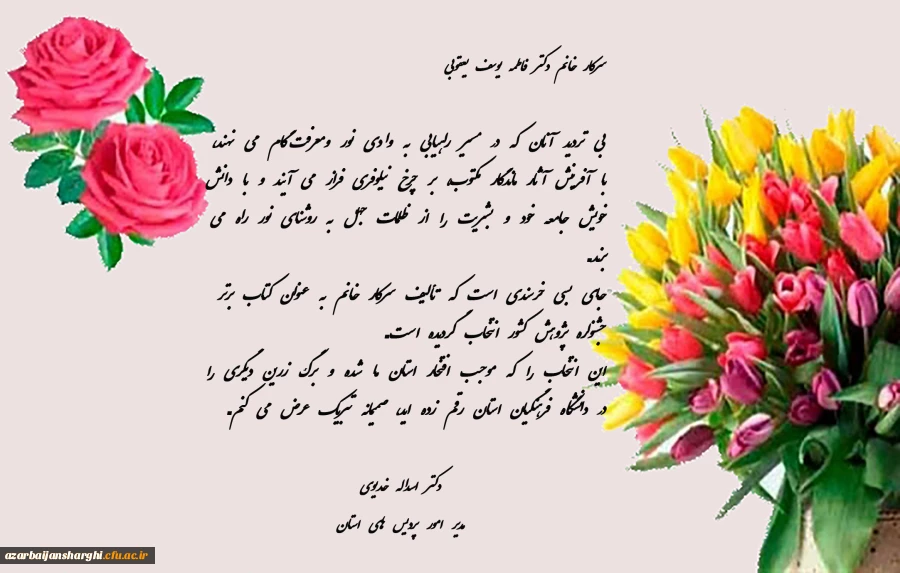 سرکار خانم دکتر فاطمه یوسف یعقوبی
بی تردید آنان که در مسیر رهیابی به وادی نور ومعرفت‌گام می نهند،
با آفرینش آثار ماندگار مکتوب، بر چرخ نیلوفری فراز می آیند و با دانش
خویش جامعه خود و بشریت را از ظلمات جهل به روشنای نور راه می
برند.
جای بسی خرسندی است که تالیف سرکار خانم به عنوان کتاب برتر
جشنواره پژوهش کشور انتخاب گردیده است.
این انتخاب را که موجب افتخار استان ما شده و برگ زرین دیگری را
در دانشگاه فرهنگیان استان رقم زده اید، صمیمانه تبریک عرض می کنم.
دکتر اسداله خدیوی
مدیر امور پردیس های استان
azarbaijansharghi.cfu.ac.ir